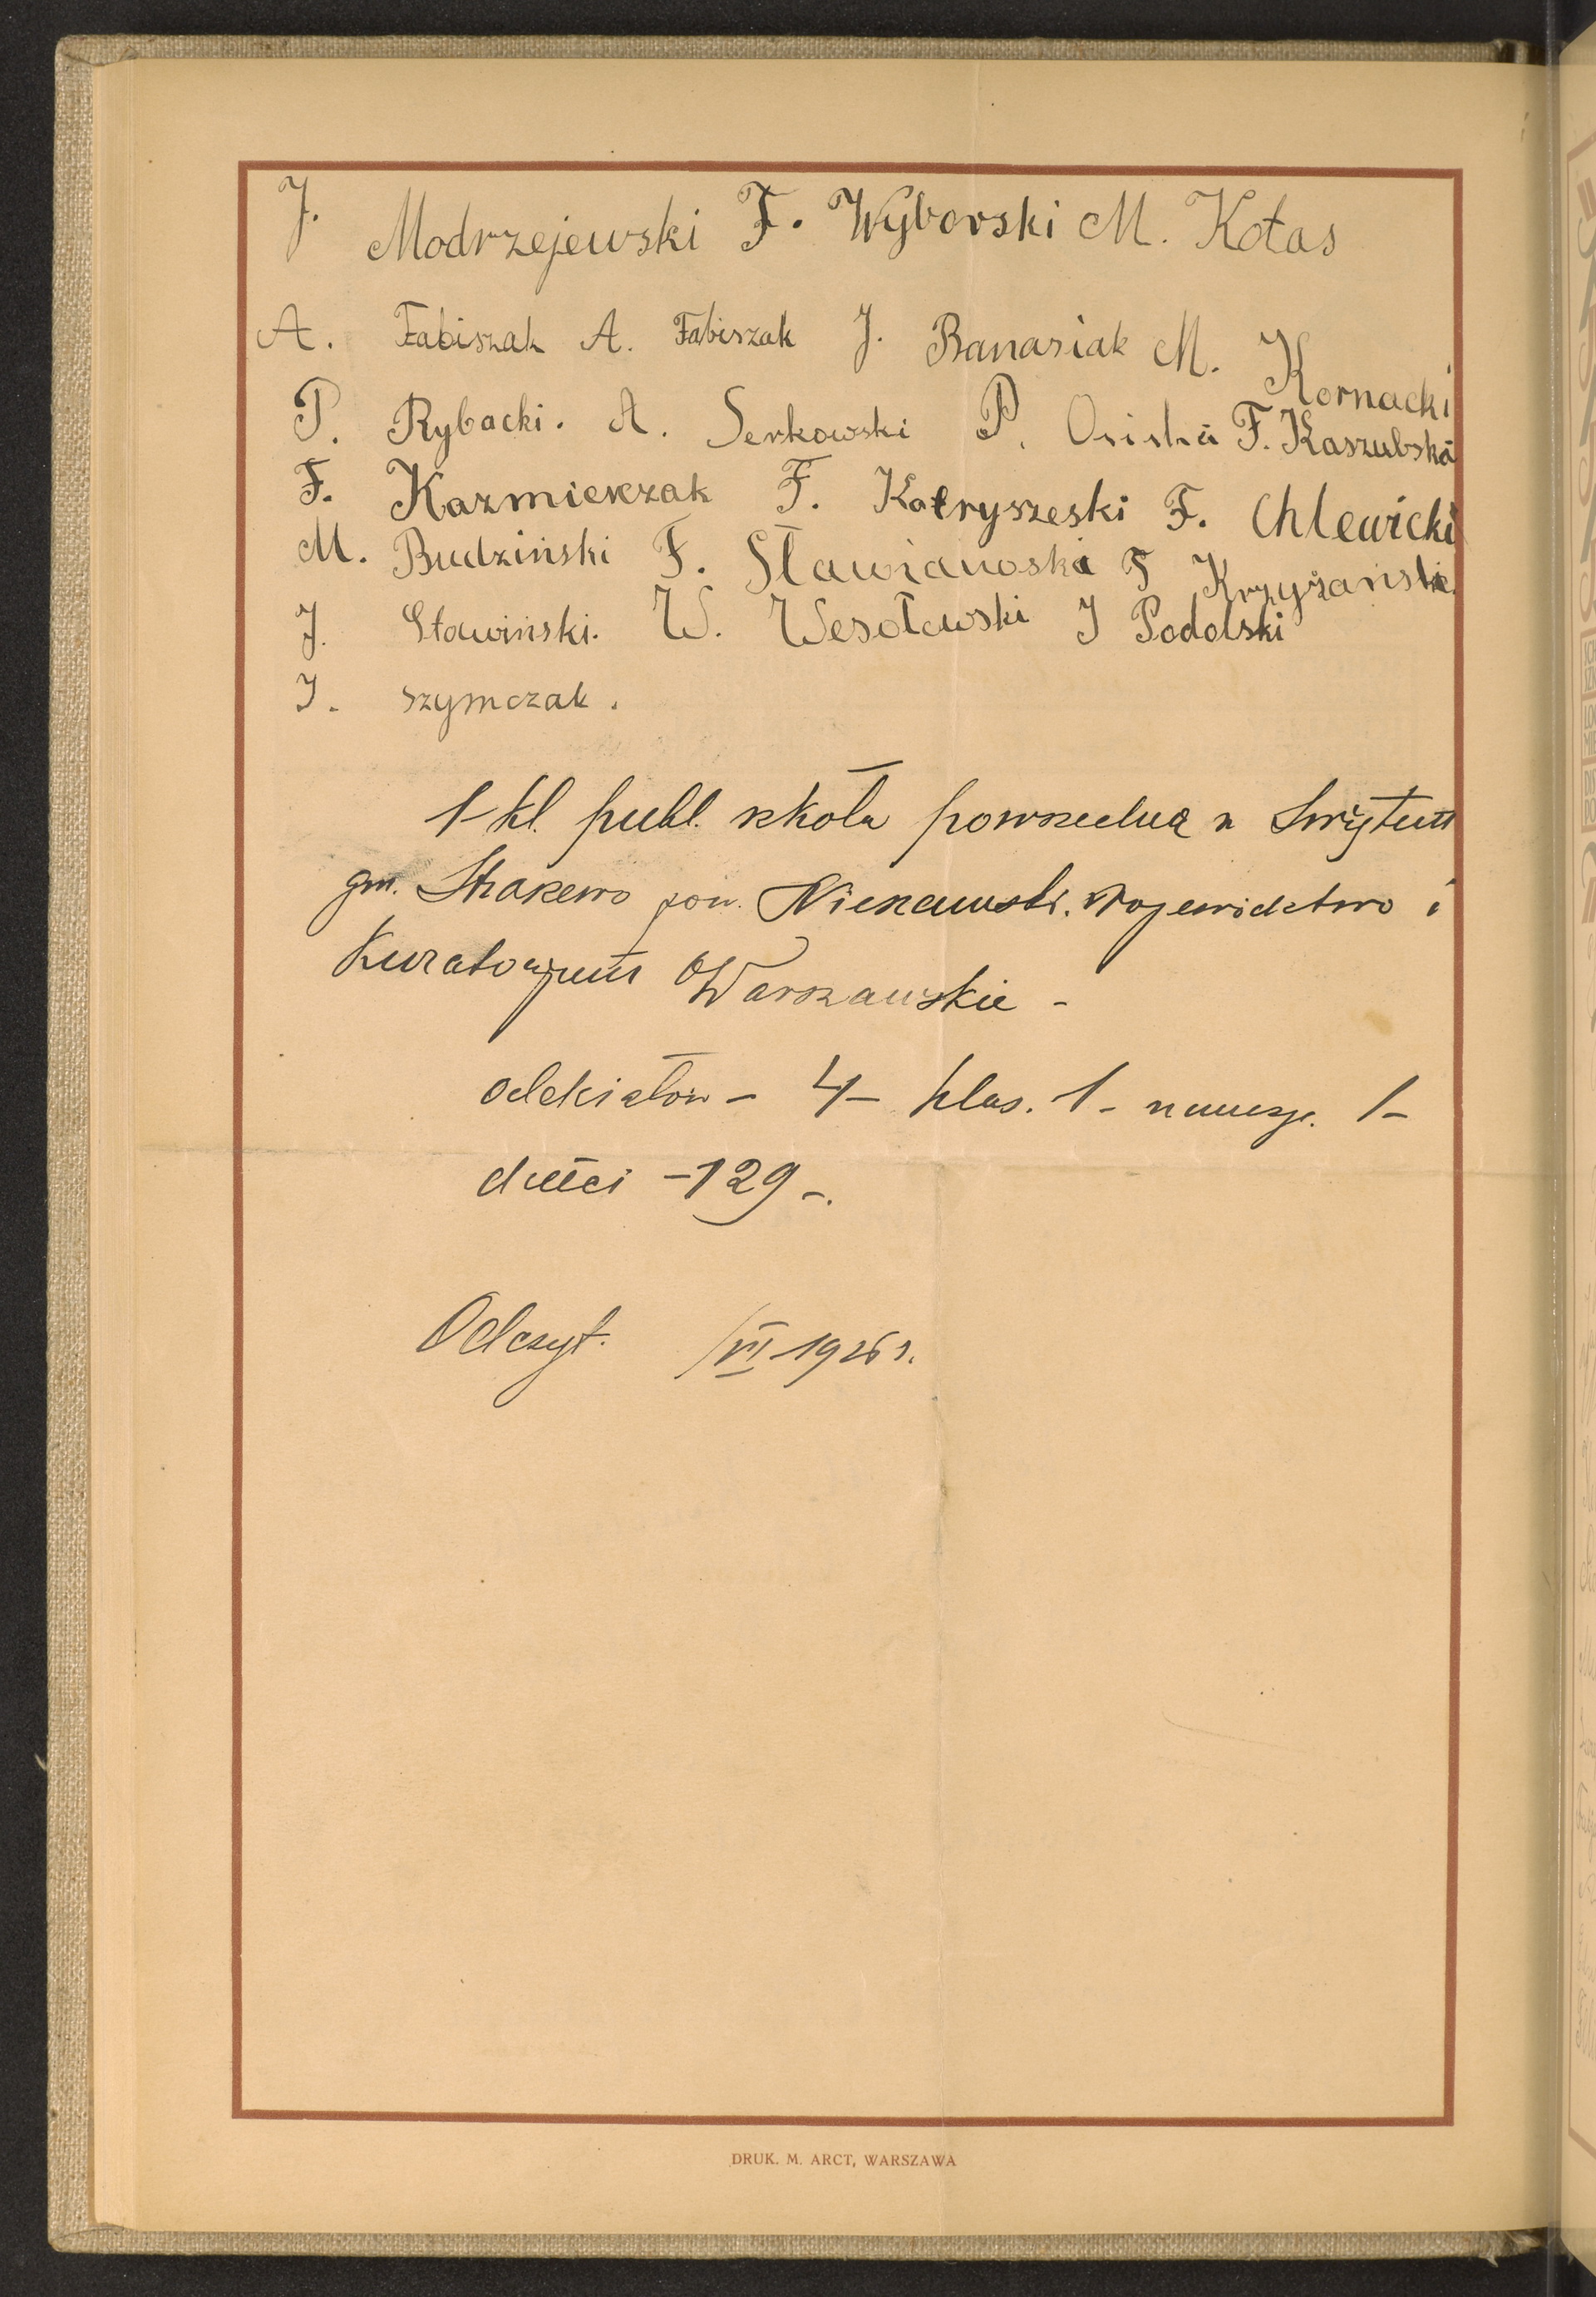 J. Modrzejewski F. Wyborski M. Kotas
A. Fabiszak A. Fabiszak J. Banasiak M. Kornacki
P. Rybacki. A. Serkowski P. Osiska F. Kaszubska
F. Kazmierczak F. Kotryszeski F. Chlewicki
M. Budziński F. Sławianoska F Krzyżańska
J. Sławiński. W. Wesołowski J Podolski
J. szymczak.
1 kl. publ. szkoła powszechna w
gm. pow. Nieszawski. Województwo i
Kuratorjum Warszawskie -
oddziałów - 4 - klas. 1 - nauczyc. 1 -
dzieci - 129 -.
Odczyt. /VI 1926 r.
DRUK. M. ARCT, WARSZAWA